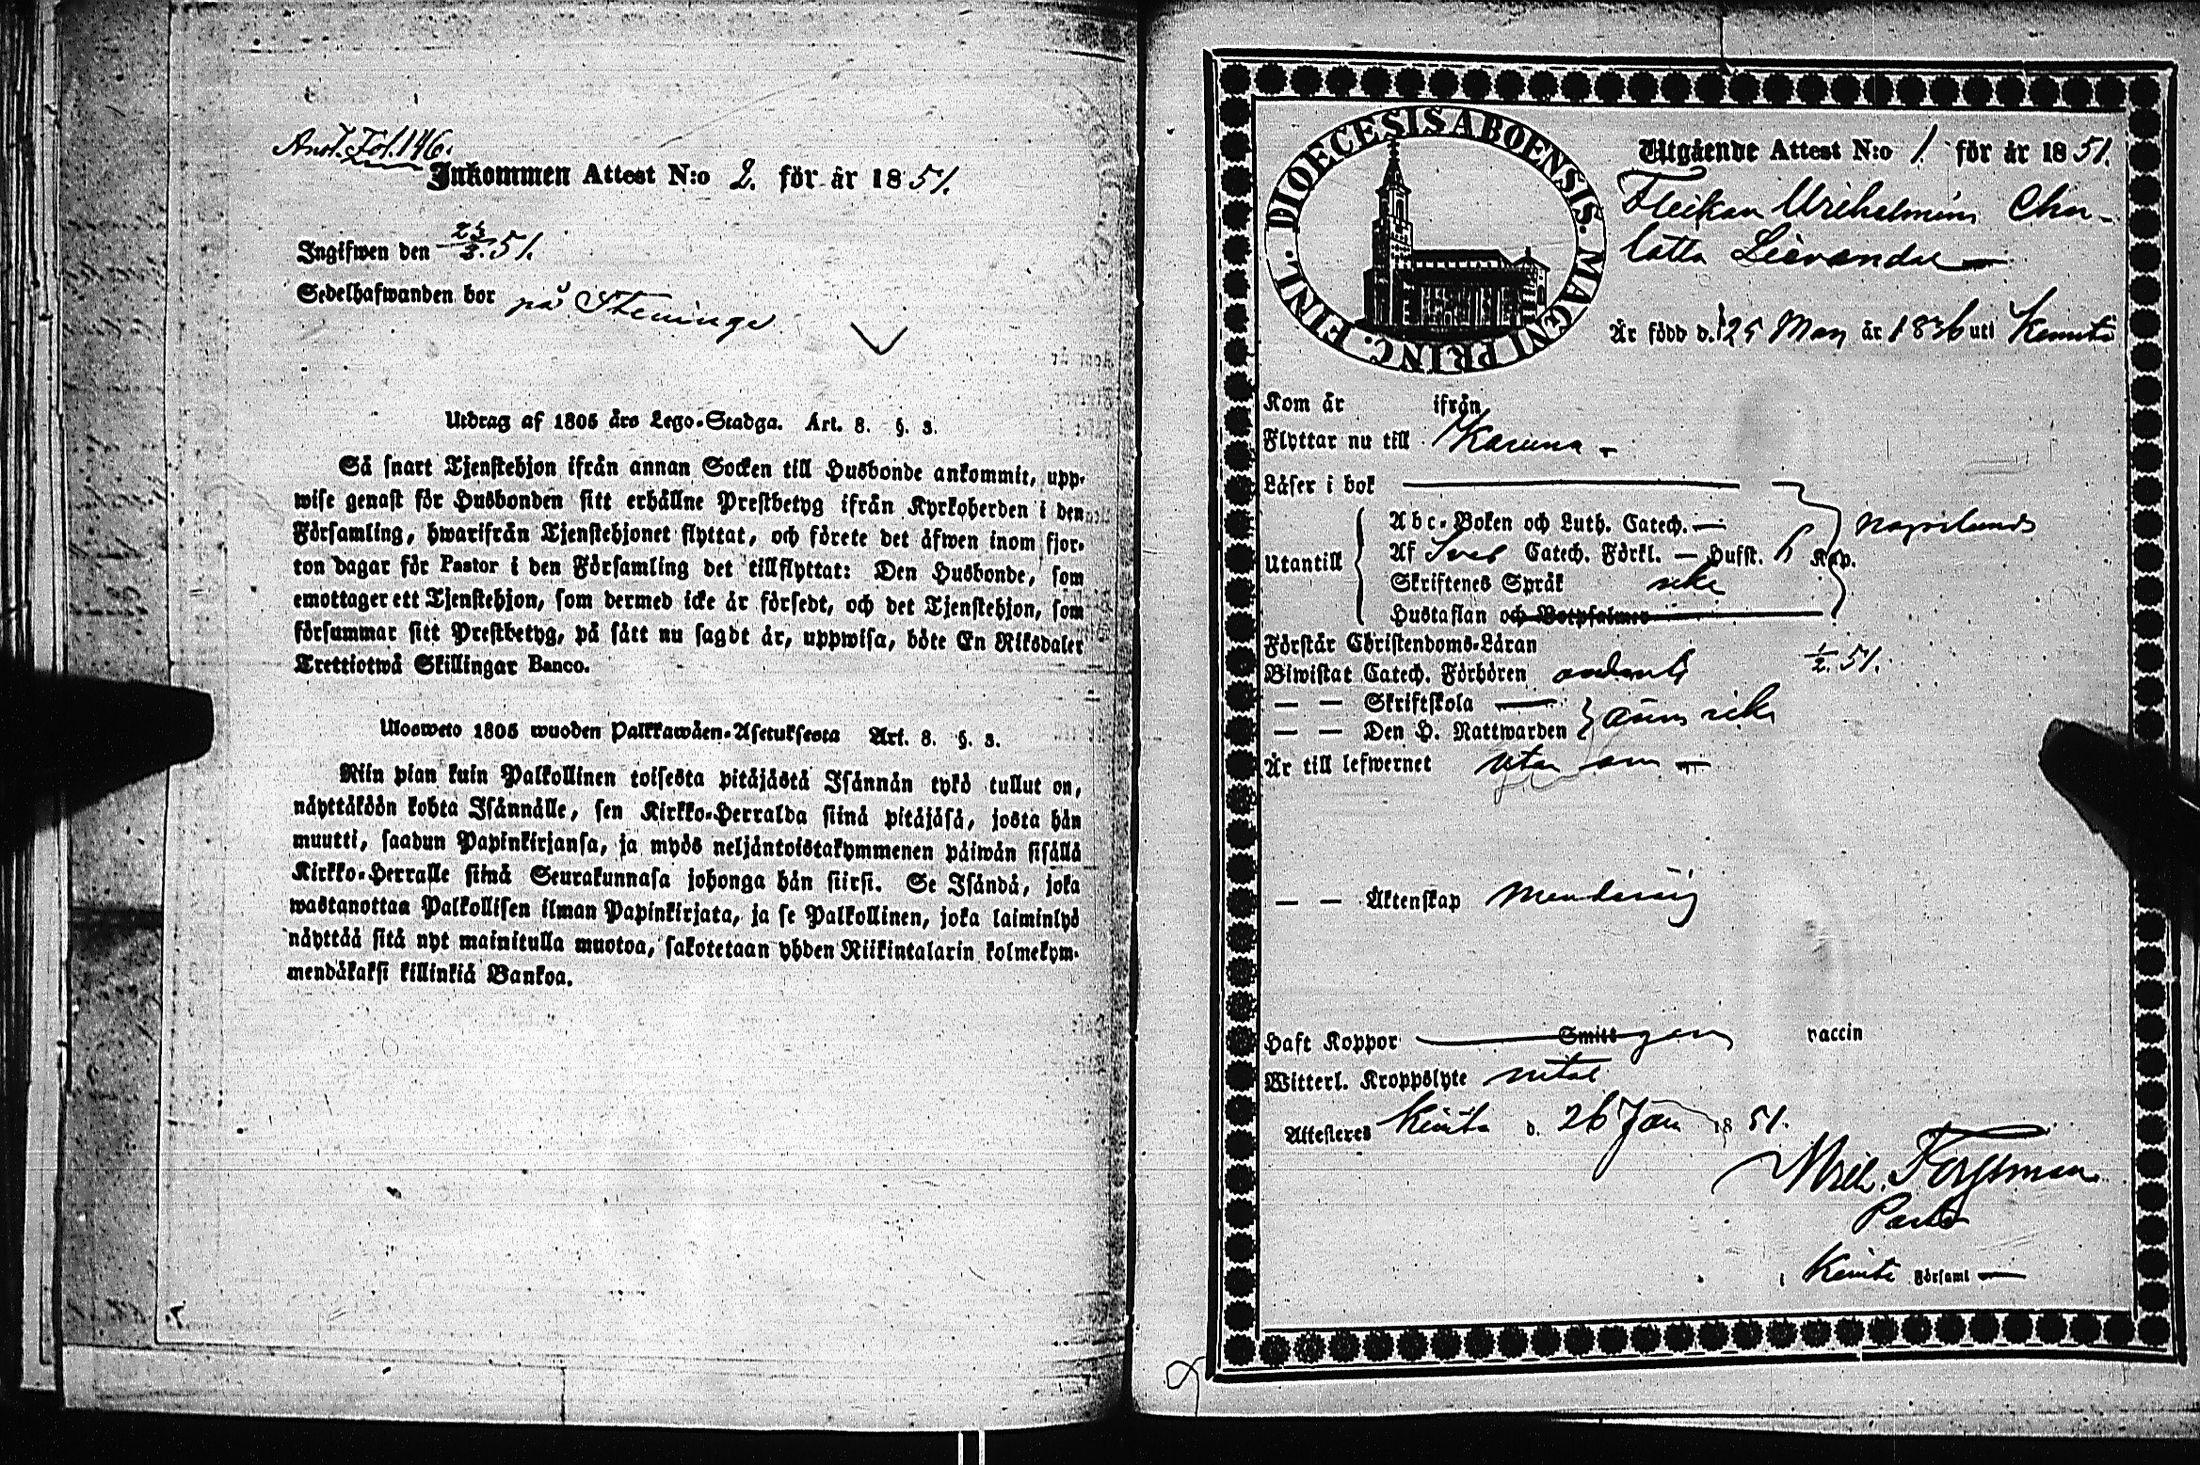 Anot. Fol. 146.
Inkommen Attest N:o 2. för år 1851.
Ingifwen den 23/3. 51.
Sedelhafwanden bor på Steninge
Utdrag af 1805 års Lego-Stadga. Art. 8. §. 3.
Så snart Tjenstehjon ifrån annan Socken till Husbonde ankommit, upp-
wise genast för Husbonden sitt erhållne Prestbetyg ifrån Kyrkoherden i den
Församling, hwarifrån Tjenstehjonet flyttat, och förete det äfwen inom fjor-
ton dagar för Pastor i den Församling det tillflyttat: Den Husbonde, som
emottager ett Tjenstehjon, som dermed icke är försedt, och det Tjenstehjon, som
försummar sitt Prestbetyg, på sätt nu sagdt är, uppwisa, böte En Riksdaler
Trettiotwå Skillingar Banco.
Ulosweto 1805 wuoden Palkkawäen-Asetuksesta Art. 8. §. 3.
Niin pian kuin Palkollinen toisesta pitäjästä Isännän tykö tullut on,
näyttäköön kohta Isännälle, sen Kirkko-Herralda siinä pitäjäsä, josta hän
muutti, saadun Papinkirjansa, ja myös neljäntoistakymmenen päiwän sisällä
Kirkko-Herralle siinä Seurakunnasa johonga hän siirsi. Se Isändä, joka
wastanottaa Palkollisen ilman Papinkirjata, ja se Palkollinen, joka laiminlyö
näyttää sitä nyt mainitulla muotoa, sakotetaan yhden Riikintalarin kolmekym-
mendäkaksi killinkiä Bankoa.
DIOECESIS ABOENSIS. MAGNI PRINC. FINL.
Utgående Attest N:o 1. för år 1851.
Flickan Wilhelmina Char-
lotta
Är född d. 25 May år 1836 uti Kimito
Kom år ifrån
Flyttar nu till Karuna
Läser i bok
Abc-Boken och Luth. Catech.
Utantill Af Sveb Catech. Förkl. Husst. Kap.
Skriftenes Språk icke
Hustaflan och Botpsalmer
Förstår Christendoms-Läran
Biwistat Catech. Förhören
1/2. 51.
Skriftskola
Den H. Nattwarden ännu icke
Är till lefwernet utan
Äktenskap
Haft Koppor Smitt gen vaccin
Witterl. Kroppslyte utan
Attesteres Kimito d. 26 Jan 1851.
Wilh. Forssman
Pastor
i Kimito Församl